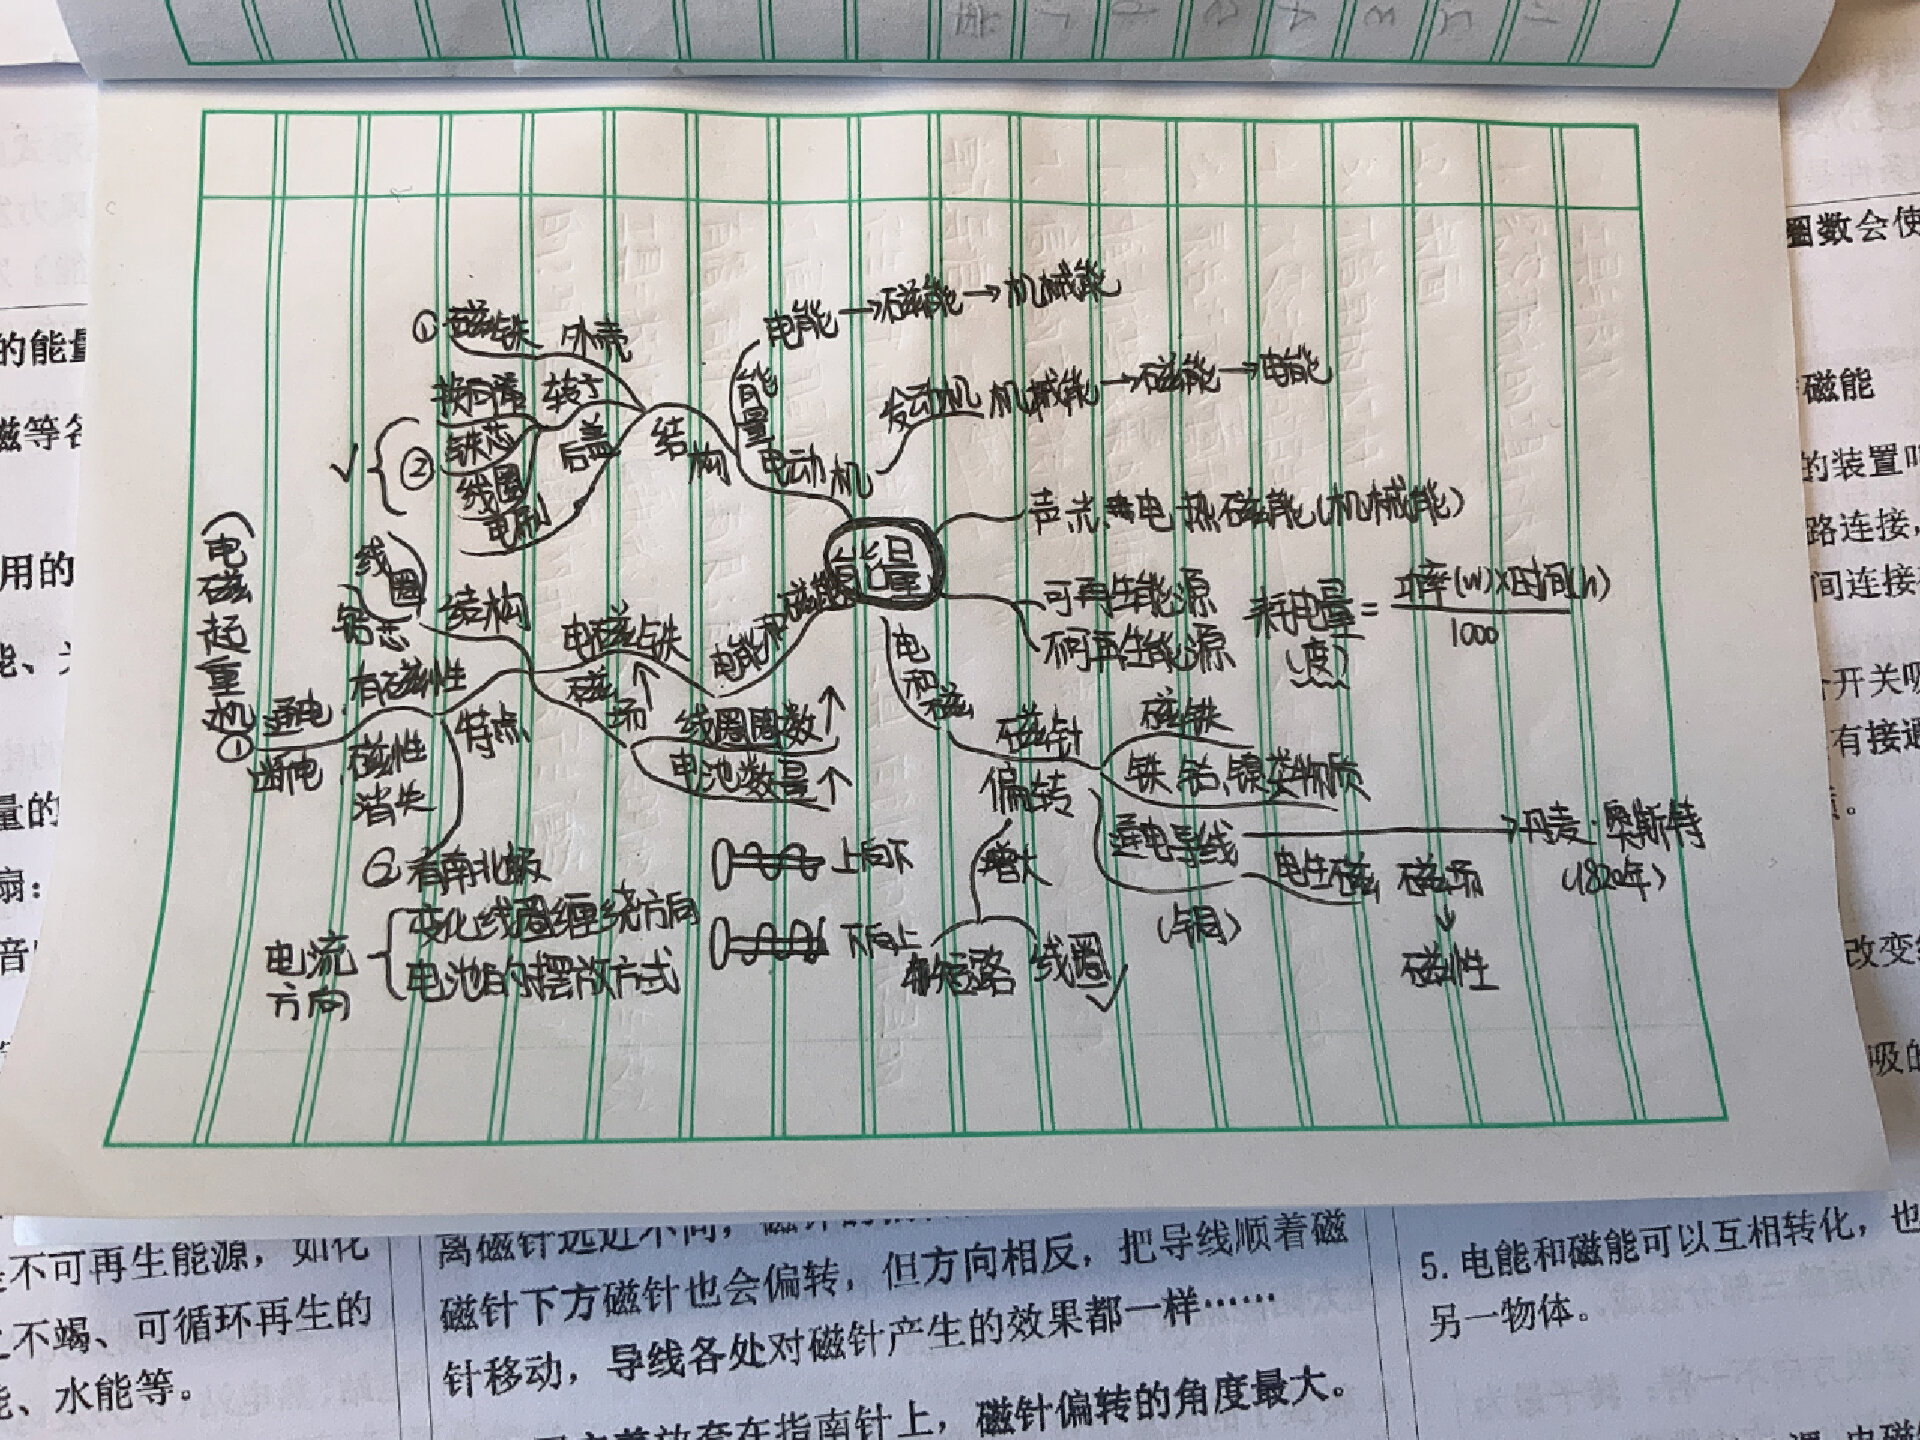 圈数会使
的能量
磁等各
用的
量的
扇：
磁能
的装置
路连接，
间连接
开关吸
有接通
改变
吸的
①磁铁 外壳
换向器 转子
② 铁芯 后盖
线圈
电刷
结构
能量
电能→磁能→机械能
电动机
发动机 机械能→磁能→电能
能量
声 光 电 热 磁能(机械能)
可再生能源
不可再生能源
耗电量=功率(W)×时间(h)
1000
(度)
(电磁起重机)
线圈
铁芯
结构
电磁铁
电能和磁能
有磁性
① 通电
断电 磁性消失
特点
磁场↑
线圈圈数↑
电池数量↑
②有南北极
电流方向
变化线圈缠绕方向
电池的摆放方式
上向下
下向上
电和磁
磁针偏转
磁铁
铁、钴、镍类物质
通电导线
(铜)
→丹麦·奥斯特
(1820年)
电生磁 磁场
↓
磁性
增大
短路 线圈
不可再生能源，如化
不竭、可循环再生的
能、水能等。
离磁针远近不同，
磁针下方磁针也会偏转，但方向相反，把导线顺着磁
针移动，导线各处对磁针产生的效果都一样……
套在指南针上，磁针偏转的角度最大。
5. 电能和磁能可以互相转化，也
另一物体。